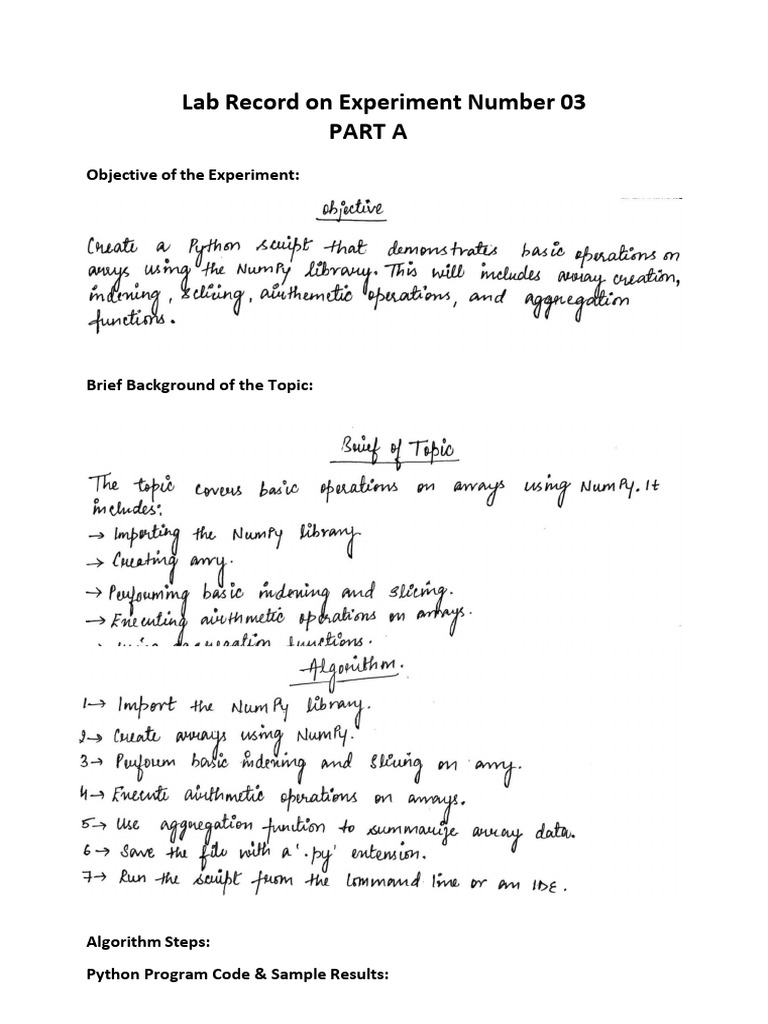 Lab Record on Experiment Number 03
PART A
Objective of the Experiment:
objective
Create a Python script that demonstrates basic operations on
arrays using the NumPy library. This will includes array creation,
indexing, sclicing, airthemetic operations, and aggregation
functions.
Brief Background of the Topic:
Brief of Topic
The topic covers basic operations on arrays using NumPy. It
includes:
→ Importing the NumPy library
→ Creating arry.
→ Performing basic indexing and slicing.
→ Executing airthmetic operations on arrays.
aggregation functions.
Algorithm.
1→ Import the NumPy library.
2→ Create arrays using NumPy.
3→ Perform basic indexing and slicing on arry.
4→ Execute airthmetic operations on arrays.
5→ Use aggregation function to summarize array data.
6→ Save the file with a '.py' extension.
7→ Run the script from the command line or an IDE.
Algorithm Steps:
Python Program Code & Sample Results: